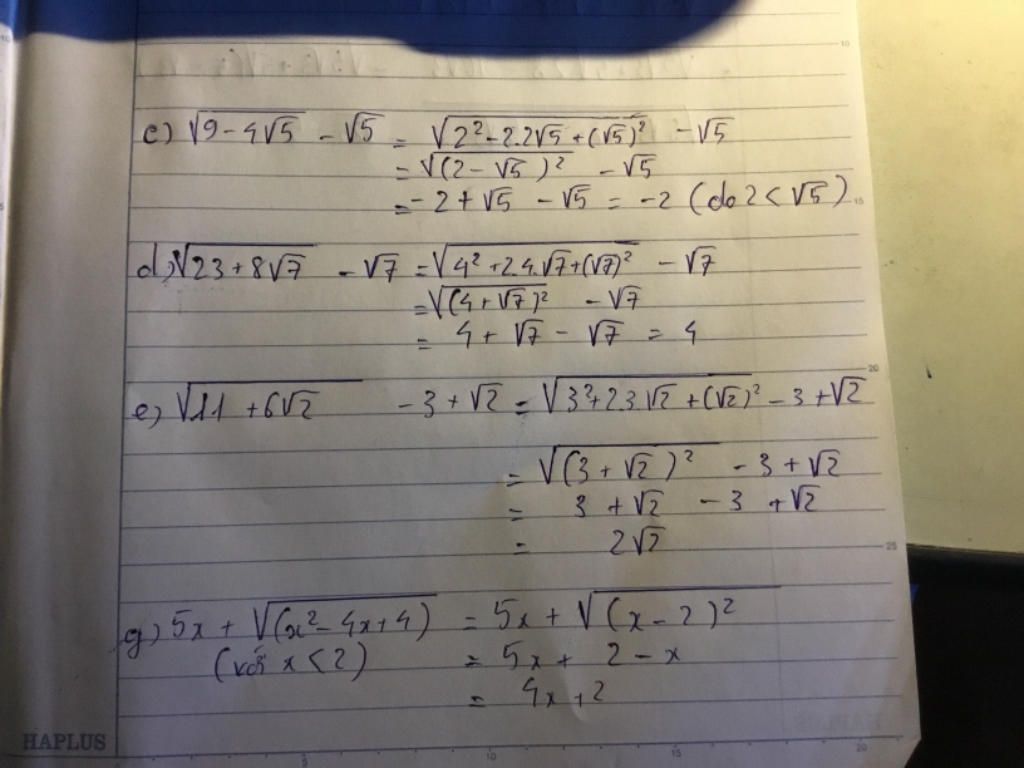 c) √9 - 4√5 - √5 = √2² - 2.2√5 + (√5)² - √5
= √(2 - √5)² - √5
= -2 + √5 - √5 = -2 (do 2 < √5)
d) √23 + 8√7 - √7 = √4² + 2.4.√7 + (√7)² - √7
= √(4 + √7)² - √7
= 4 + √7 - √7 = 4
e) √11 + 6√2 - 3 + √2 = √3² + 2.3√2 + (√2)² - 3 + √2
= √(3 + √2)² - 3 + √2
= 3 + √2 - 3 + √2
= 2√2
g) 5x + √(x² - 4x + 4) = 5x + √(x - 2)²
(với x < 2) = 5x + 2 - x
= 4x + 2
HAPLUS
10
15
20
25
5
10
15
20